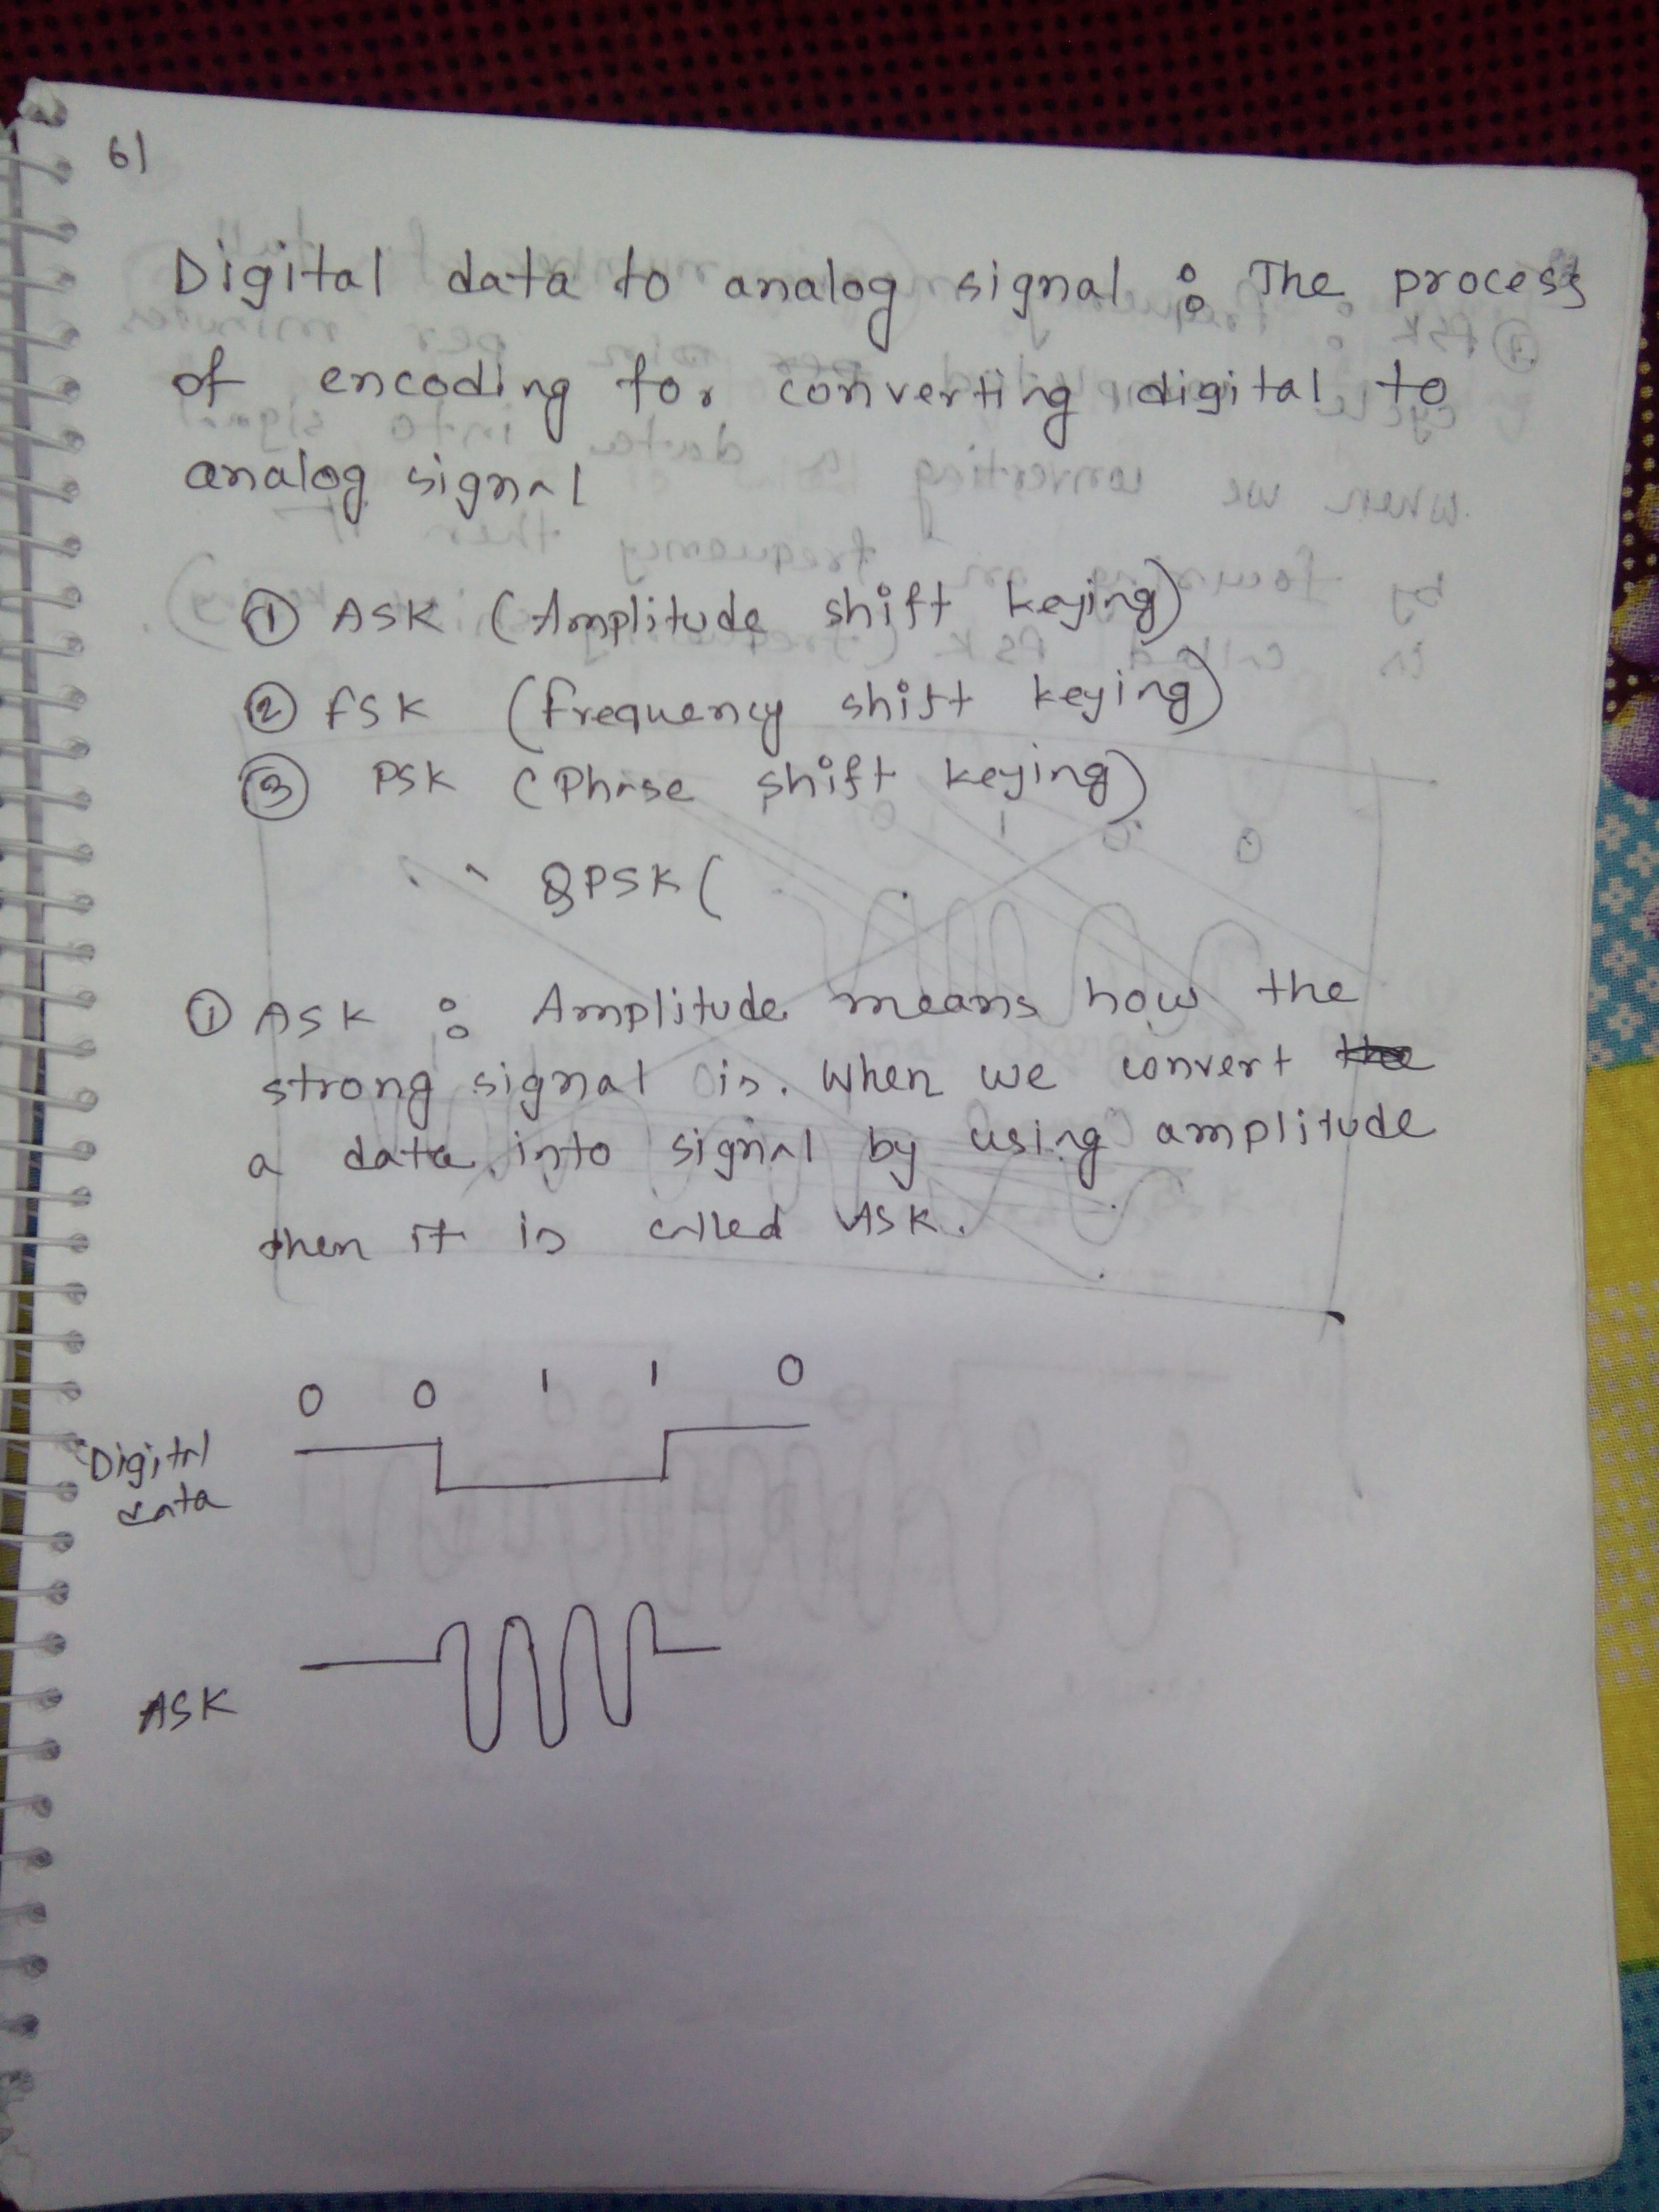 61
Digital data to analog signal : The process
of encoding for converting digital to
analog signal
① ASK (Amplitude shift keying)
② FSK (Frequency shift keying)
③ PSK (Phase shift keying)
QPSK (
① ASK : Amplitude means how the
strong signal is. When we convert the
a data into signal by using amplitude
then it is called ASK.
0 0 1 1 0
Digital
data
ASK